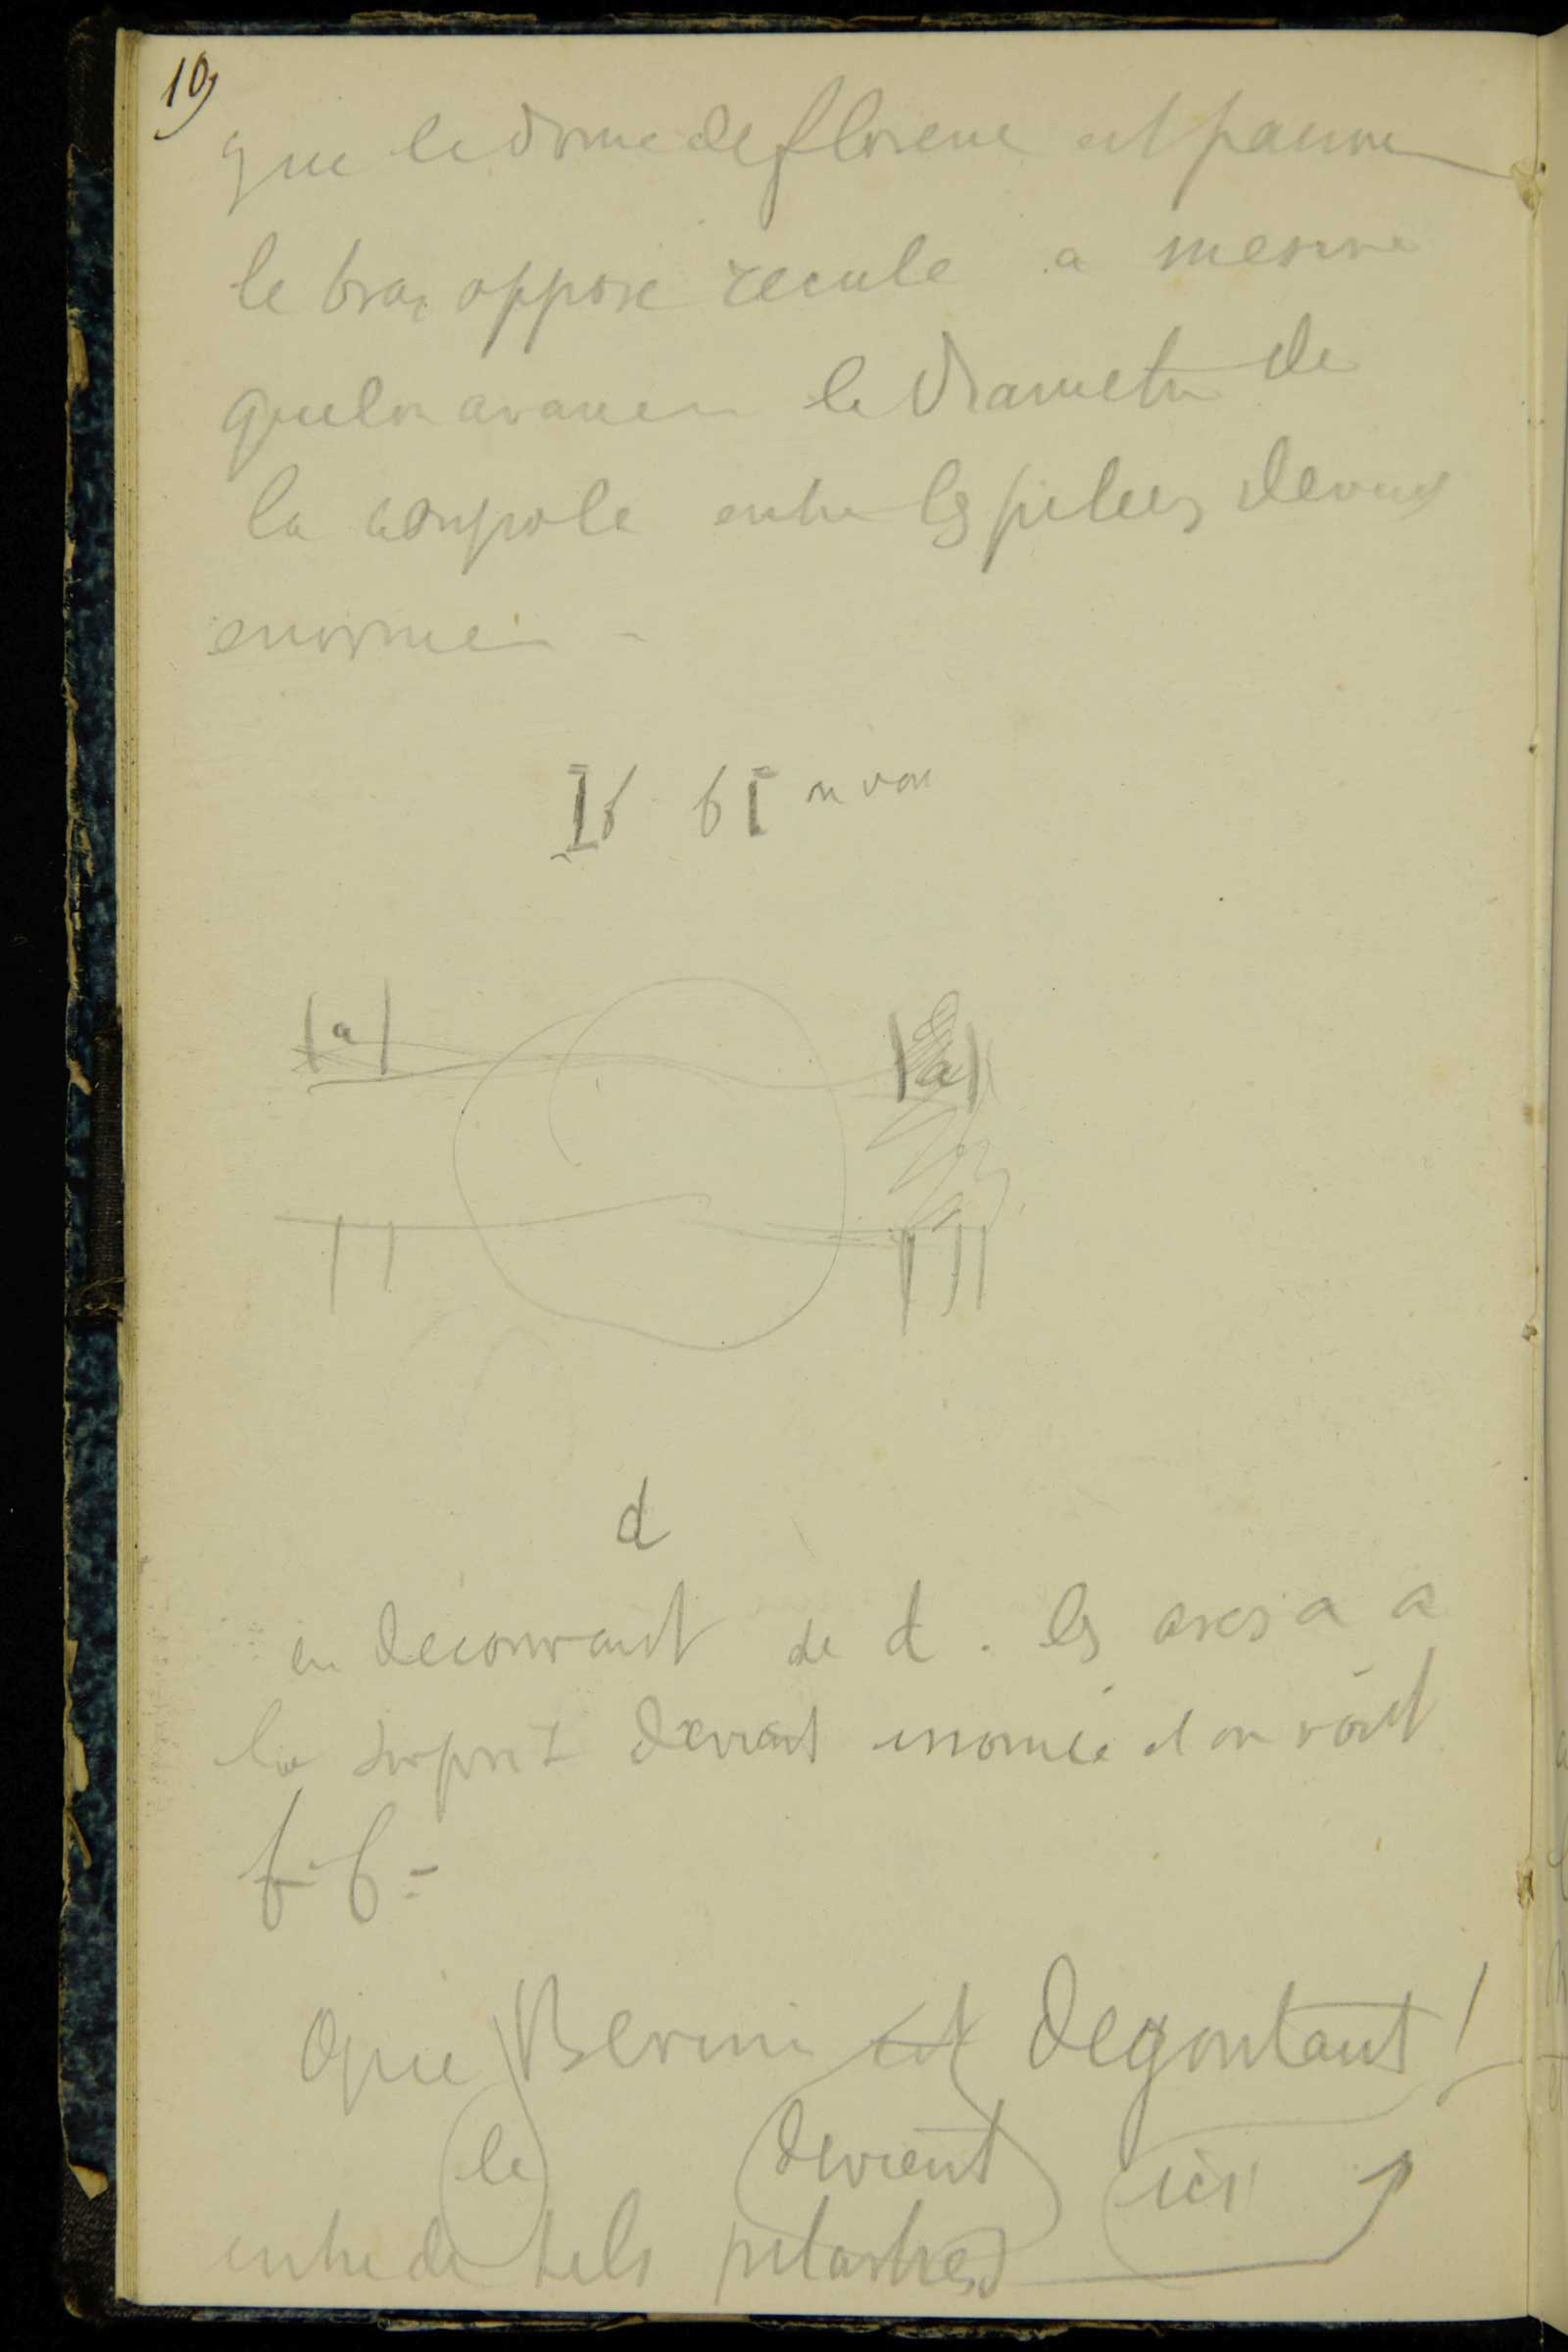 19
que le dome de florence est pauvre
le bras opposé recule a mesure
qu'on avance le diametre de
la coupole entre les piliers devient
enorme -
I b b I on voit
|a| |a|
d
en decouvrant de d . les arcs a a
la surprise devient enorme et on voit
b b =
Que le Bernin est devient degoutant !
ici
entre de tels pilastres